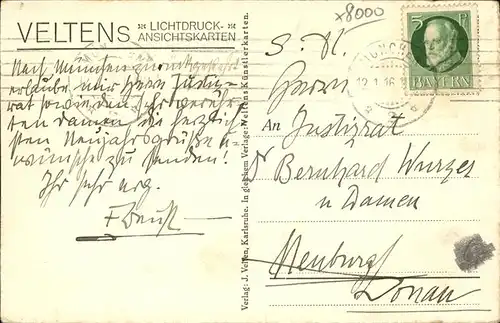 VELTENS * LICHTDRUCK- *
ANSICHTSKARTEN
x8000
5 Pf
BAYERN
MÜNCHEN
12.1.16
Nach München zurückgekehrt
erlaube mir Herrn Justiz-
rat sowie den sehr verehr-
ten Damen die herzlich-
sten Neujahrsgrüße u
wünsche zu senden!
Ihr sehr erg.
Verlag: J. Velten, Karlsruhe. In gleichem Verlage: Veltens Künstlerkarten.
S. H.
Herrn
An Justizrat
Bernhard Wurzer
u Damen
Neuburg/
Donau